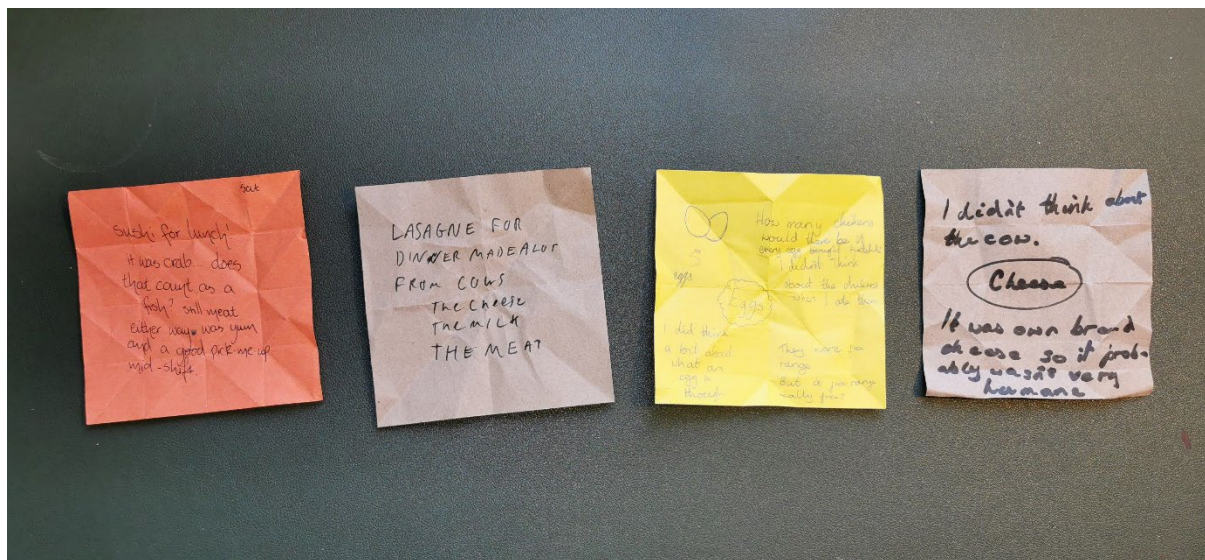 Sat
sushi for lunch!
it was crab... does
that count as a
fish? still meat
either way. was yum
and a good pick-me-up
mid-shift.
LASAGNE FOR
DINNER MADE A LOT
FROM COWS
The CHEESE
THE MILK
THE MEAT
How many chickens
would there be if
every egg bought hatched
I didn't think
about the chickens
when I ate them
3
eggs
Eggs
I did think
a bit about
what an
egg is
though
They were free
range
But is free range
really free?
I didn't think about
the cow.
Cheese
It was own brand
cheese so it prob-
ably wasn't very
humane